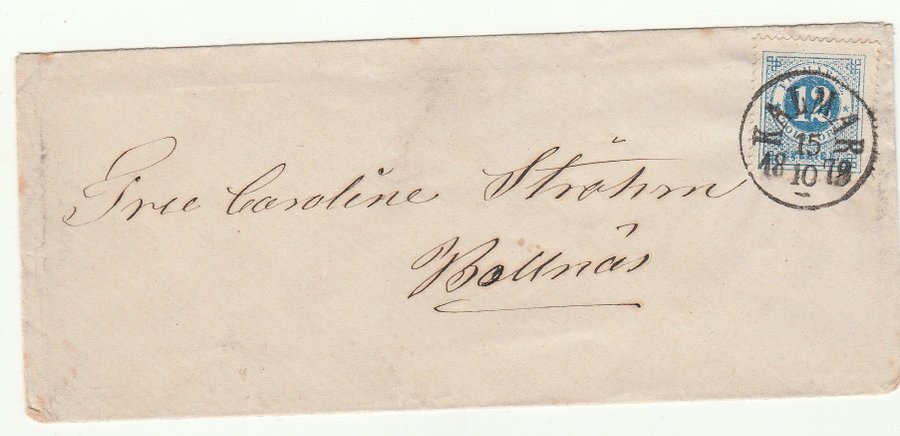 12
KALMAR
15
18 10 72
Fru Caroline Ströhm
Bollnäs